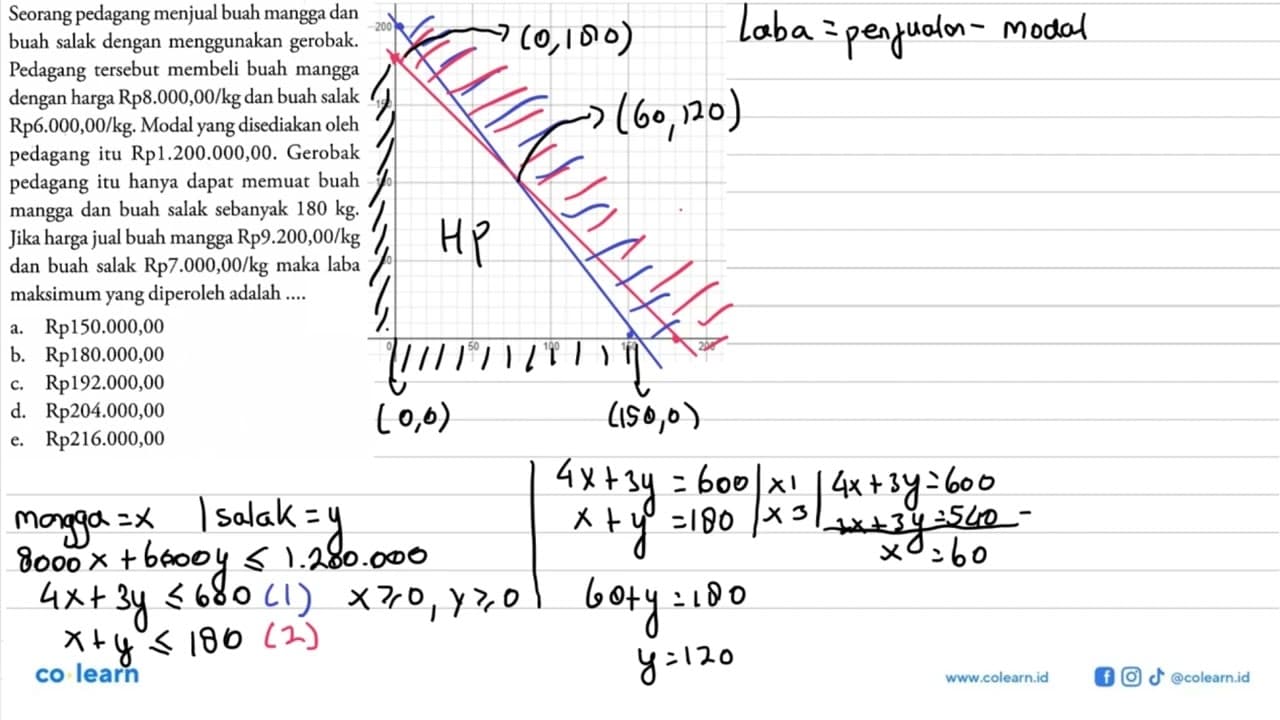 Seorang pedagang menjual buah mangga dan
buah salak dengan menggunakan gerobak.
Pedagang tersebut membeli buah mangga
dengan harga Rp8.000,00/kg dan buah salak
Rp6.000,00/kg. Modal yang disediakan oleh
pedagang itu Rp1.200.000,00. Gerobak
pedagang itu hanya dapat memuat buah
mangga dan buah salak sebanyak 180 kg.
Jika harga jual buah mangga Rp9.200,00/kg
dan buah salak Rp7.000,00/kg maka laba
maksimum yang diperoleh adalah ....
a. Rp150.000,00
b. Rp180.000,00
c. Rp192.000,00
d. Rp204.000,00
e. Rp216.000,00
200
(0,180)
(60,120)
HP
0 50 100 150 200
(0,0) (150,0)
Laba = penjualan - modal
mangga = x | salak = y
8000x + 6000y ≤ 1.200.000
4x + 3y ≤ 600 (1) x ≥ 0, y ≥ 0
x + y ≤ 180 (2)
4x + 3y = 600 | x1 | 4x + 3y = 600
x + y = 180 | x3 | 3x + 3y = 540 -
x = 60
60 + y = 180
y = 120
co·learn
www.colearn.id @colearn.id